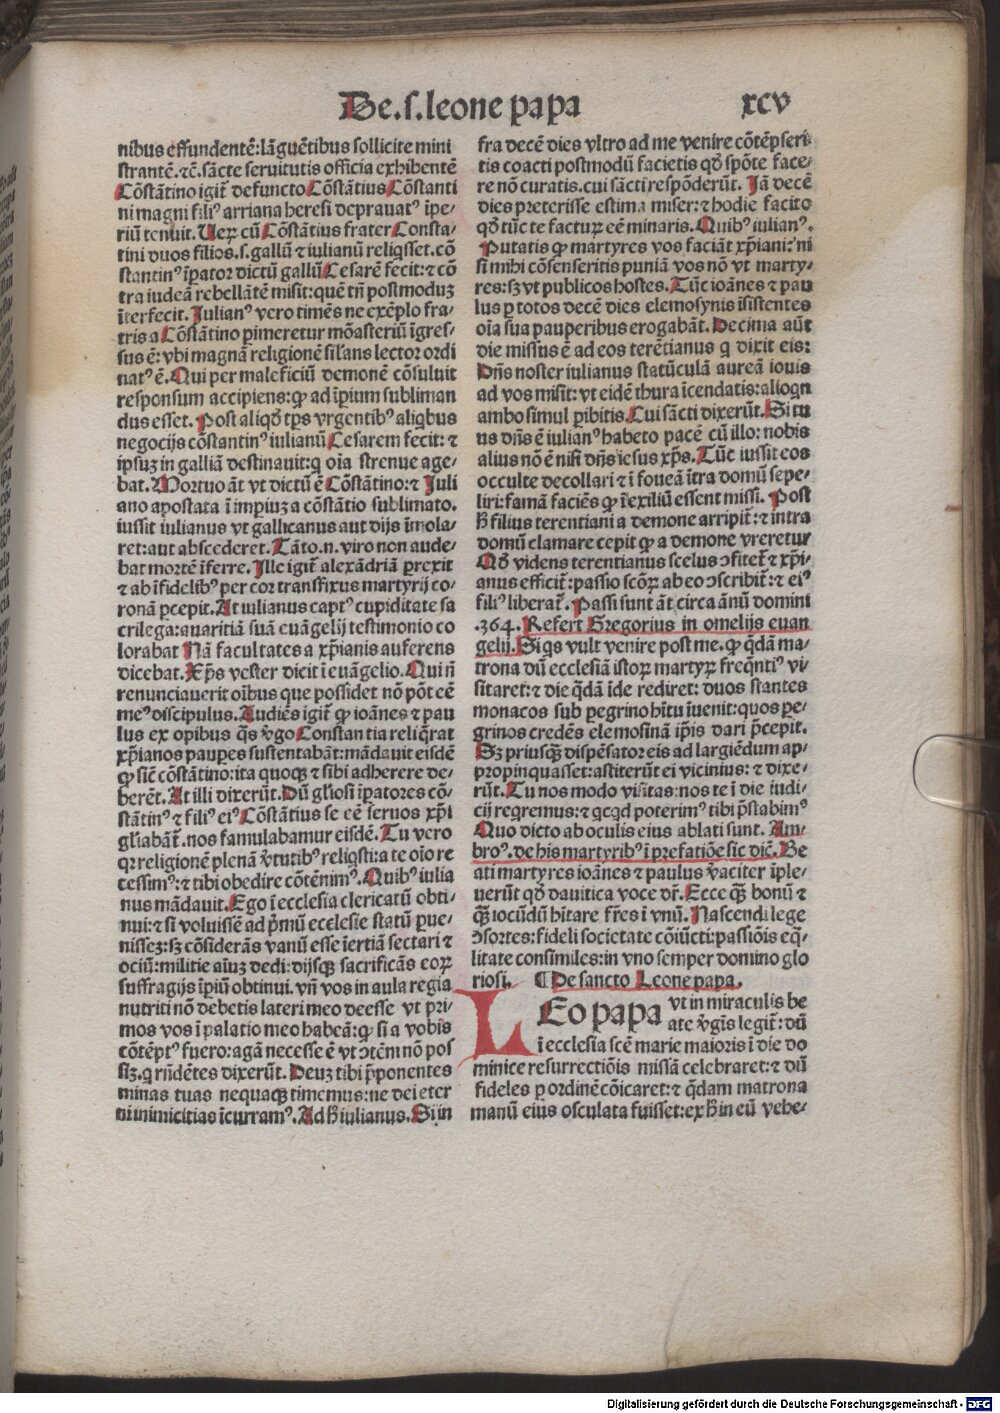 De.s.leone papa
xcv
nibus effundentē:lāguētibus sollicite mini
strantē.⁊cē.sācte seruitutis officia exhibentē
Cōstātino igit᷑ defuncto Cōstātius Cōstanti
ni magni filiꝰ arriana heresi deprauatꝰ īpe⸗
riū tenuit. Uerꝝ cū Cōstātius frater Consta⸗
tini duos filios.s.gallū ⁊ iulianū reliq̄sset.cō
stantinꝰ īꝑator dictū gallū Cesarē fecit:⁊ cō
tra iudeā rebellātē misit:quē tn̄ postmoduꝫ
īterfecit. Iulianꝰ vero timēs ne exēplo fra⸗
tris a Cōstātino ꝑimeretur mōasteriū īgres⸗
sus ē: vbi magnā religionē sil̄ans lector ordi
natꝰ ē. Qui per maleficiū demonē cōsuluit
responsum accipiens:ꝙ ad īꝑium subliman
dus esset. Post aliqd̄ tꝑs vrgentibꝰ aliq̄bus
negocijs cōstantinꝰ iulianū Cesarem fecit: ⁊
ipsuꝫ in galliā destinauit:q oīa strenue age⸗
bat. Mortuo āt vt dictū ē Cōstātino:⁊ Iuli
ano apostata ī imꝑiuꝫ a cōstātio sublimato.
iussit iulianus vt gallicanus aut dijs īmola⸗
ret:aut abscederet. Tāto.n.viro non aude⸗
bat mortē īferre. Ille igit᷑ alexādriā ꝑrexit
⁊ ab īfidelibꝰ per cor transfixus martyrij co⸗
ronā ꝑcepit. At iulianus captꝰ cupiditate sa
crilega:auaritiā suā euāgelij testimonio co
lorabat Nā facultates a xp̄ianis auferens
dicebat. Xp̄s vester dicit ī euāgelio. Qui n̄
renunciauerit oībus que possidet nō pōt eē
meꝰ discipulus. Audiēs igit᷑ ꝙ ioānes ⁊ pau
lus ex opibus q̄s v̄go Constantia reliq̄rat
xp̄ianos pauꝑes sustentabāt:mādauit eisdē
ꝙ siē cōstātino:ita quoqꝫ ⁊ sibi adherere de⸗
berēt. At illi dixerūt. Dū gl̄iosi īꝑatores cō⸗
stātinꝰ ⁊ filiꝰ eiꝰ Cōstātius se eē seruos xp̄i
gl̄iabāt᷑.nos famulabamur eisdē. Tu vero
qꝛ religionē plenā v̄tutibꝰ reliq̄sti:a te oīo re
cessimꝰ:⁊ tibi obedire cōtēnimꝰ. Quibꝰ iulia
nus mādauit. Ego ī ecclesia clericatū obti⸗
nui:⁊ si voluissē ad p̄mū ecclesie statū ꝑue⸗
nisseꝫ:sꝫ cōsiderās vanū esse īertiā sectari ⁊
ociū:militie aīuꝫ dedi:dijsqꝫ sacrificās eoꝝ
suffragijs īꝑiū obtinui. vn̄ vos in aula regia
nutriti nō debetis lateri meo deesse vt pri⸗
mos vos ī palatio meo habeā:ꝙ si a vobis
cōtēptꝰ fuero:agā necesse ē vt ↄtēni nō pos
siꝫ.q rn̄dētes dixerūt. Deuꝫ tibi p̄ponentes
minas tuas nequaqꝫ timemus:ne dei eter
ni inimicitias īcurramꝰ. Ad h̄ iulianus. Si in
fra decē dies vltro ad me venire cōtēpseri⸗
tis coacti postmodū facietis qd̄ spōte face⸗
re nō curatis.cui sācti respōderūt. Iā decē
dies preterisse estima miser:⁊ hodie facito
qd̄ tūc te facturꝝ eē minaris. Quibꝰ iulianꝰ.
Putatis ꝙ martyres vos faciāt xp̄iani:ni
si mihi cōsenseritis puniā vos nō vt marty⸗
res:sꝫ vt publicos hostes. Tūc ioānes ⁊ pau
lus ꝑ totos decē dies elemosynis īsistentes
oīa sua pauperibus erogabāt. Decima aūt
die missus ē ad eos terētianus q dixit eis:
Dn̄s noster iulianus statūculā aureā iouis
ad vos misit: vt eidē thura īcendatis:alioqn
ambo simul ꝑibitis. Cui sācti dixerūt. Si tu
us dn̄s ē iulianꝰ habeto pacē cū illo: nobis
alius nō ē nisi dn̄s iesus xp̄s. Tūc iussit eos
occulte decollari ⁊ ī fouea ītra domū sepe⸗
liri:famā faciēs ꝙ ī exiliū essent missi. Post
h̄ filius terentiani a demone arripit᷑:⁊ intra
domū clamare cepit ꝙ a demone vreretur
Qd̄ videns terentianus scelus ↄfitet᷑ ⁊ xp̄i⸗
anus efficit᷑:passio scōꝝ ab eo ↄscribit᷑:⁊ eiꝰ
filiꝰ liberat᷑. Passi sunt āt circa ānū domini
.364. Refert Gregorius in omelijs euan
gelij. Si qs vult venire post me.ꝙ qd̄a ma⸗
trona dū ecclesiā istoꝝ martyꝝ freq̄ntiꝰ vi⸗
sitaret:⁊ die qd̄a īde rediret: duos stantes
monacos sub ꝑegrino hītu īuenit:quos ꝑe⸗
grinos credēs elemosinā ip̄is dari p̄cepit.
Sꝫ priusqꝫ dispēsator eis ad largiēdum ap⸗
propinquasset:astiterūt ei vicinius:⁊ dixe⸗
rūt. Tu nos modo visitas:nos te ī die iudi⸗
cij reqremus:⁊ qcqd poterimꝰ tibi p̄stabimꝰ
Quo dicto ab oculis eius ablati sunt. Am⸗
broꝰ.de his martyribꝰ ī prefatiōe sic dic̄. Be
ati martyres ioānes ⁊ paulus v̄aciter īple⸗
uerūt qd̄ dauitica voce dr̄. Ecce qꝫ bonū ⁊
qꝫ iocūdū hītare fr̄es ī vnū. Nascendi lege
ↄsortes:fideli societate cōiūcti:passiōis eq̄⸗
litate consimiles:in vno semper domino glo
riosi. ¶ De sancto Leone papa.
LEo papa vt in miraculis be
ate v̄gīs legit᷑:dū
ī ecclesia scē marie maioris ī die do
minice resurrectiōis missā celebraret:⁊ dū
fideles ꝑ ordinē cōicaret:⁊ qd̄am matrona
manū eius osculata fuisset:ex h̄ in eū vehe⸗
Digitalisierung gefördert durch die Deutsche Forschungsgemeinschaft - DFG